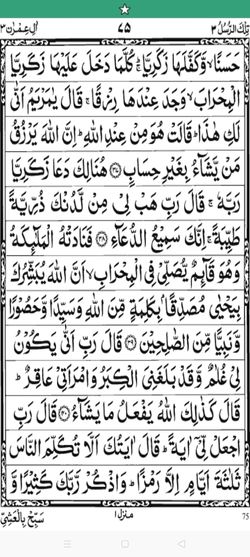 تِلْكَ الرُّسُلُ ٣ ٧٥ اٰلِ عِمْرٰن ٣
حَسَنًا ۙ وَّكَفَّلَهَا زَكَرِيَّا ؕ كُلَّمَا دَخَلَ عَلَيْهَا زَكَرِيَّا
الْمِحْرَابَ ۙ وَجَدَ عِنْدَهَا رِزْقًا ۚ قَالَ يٰمَرْيَمُ اَنّٰى
لَكِ هٰذَا ؕ قَالَتْ هُوَ مِنْ عِنْدِ اللّٰهِ ؕ اِنَّ اللّٰهَ يَرْزُقُ
مَنْ يَّشَآءُ بِغَيْرِ حِسَابٍ ﴿۳۷﴾ هُنَالِكَ دَعَا زَكَرِيَّا
رَبَّهٗ ۚ قَالَ رَبِّ هَبْ لِىْ مِنْ لَّدُنْكَ ذُرِّيَّةً
طَيِّبَةً ۚ اِنَّكَ سَمِيْعُ الدُّعَآءِ ﴿۳۸﴾ فَنَادَتْهُ الْمَلٰٓئِكَةُ
وَهُوَ قَآئِمٌ يُّصَلِّىْ فِى الْمِحْرَابِ ۙ اَنَّ اللّٰهَ يُبَشِّرُكَ
بِيَحْيٰى مُصَدِّقًۢا بِكَلِمَةٍ مِّنَ اللّٰهِ وَسَيِّدًا وَّحَصُوْرًا
وَّنَبِيًّا مِّنَ الصّٰلِحِيْنَ ﴿۳۹﴾ قَالَ رَبِّ اَنّٰى يَكُوْنُ
لِىْ غُلٰمٌ وَّقَدْ بَلَغَنِىَ الْكِبَرُ وَامْرَاَتِىْ عَاقِرٌ ؕ
قَالَ كَذٰلِكَ اللّٰهُ يَفْعَلُ مَا يَشَآءُ ﴿۴۰﴾ قَالَ رَبِّ
اجْعَلْ لِّىْٓ اٰيَةً ؕ قَالَ اٰيَتُكَ اَلَّا تُكَلِّمَ النَّاسَ
ثَلٰثَةَ اَيَّامٍ اِلَّا رَمْزًا ؕ وَاذْكُرْ رَّبَّكَ كَثِيْرًا وَّ
75 منزل ١ سَبِّحْ بِالْعَشِىِّ